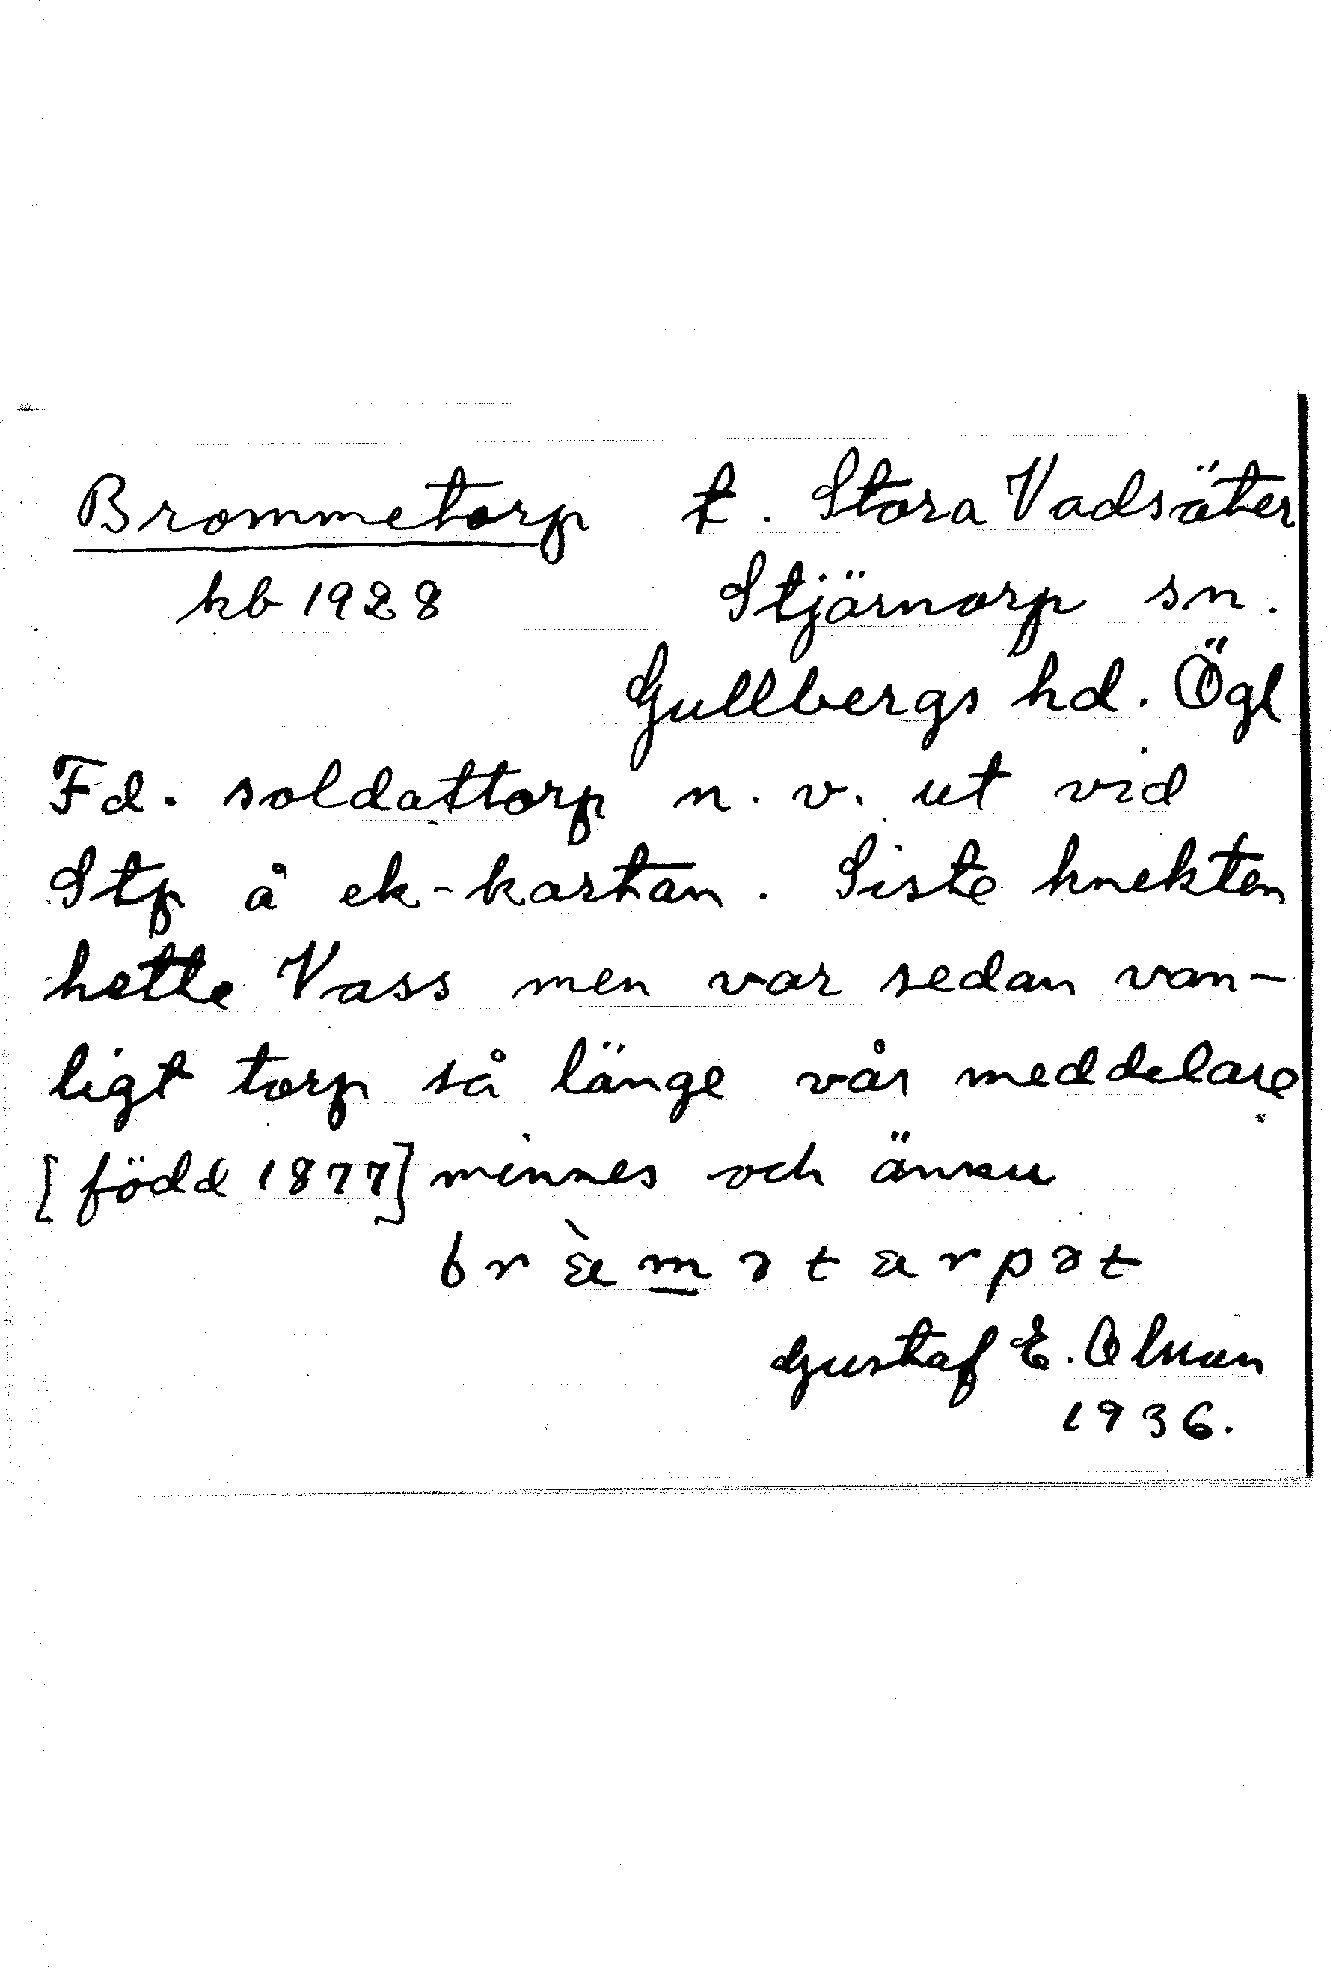 Brommetorp t. Stora Vadsäter
kb 1928 Stjärnorp sn.
Gullbergs hd. Ögl
Fd. soldattorp n. v. ut vid
Stp å ek-kartan. Siste knekten
hette Vass men var sedan van-
ligt torp så länge vår meddelare
[född 1877] minnes och ännu
Gustaf E. Olsson
1936.